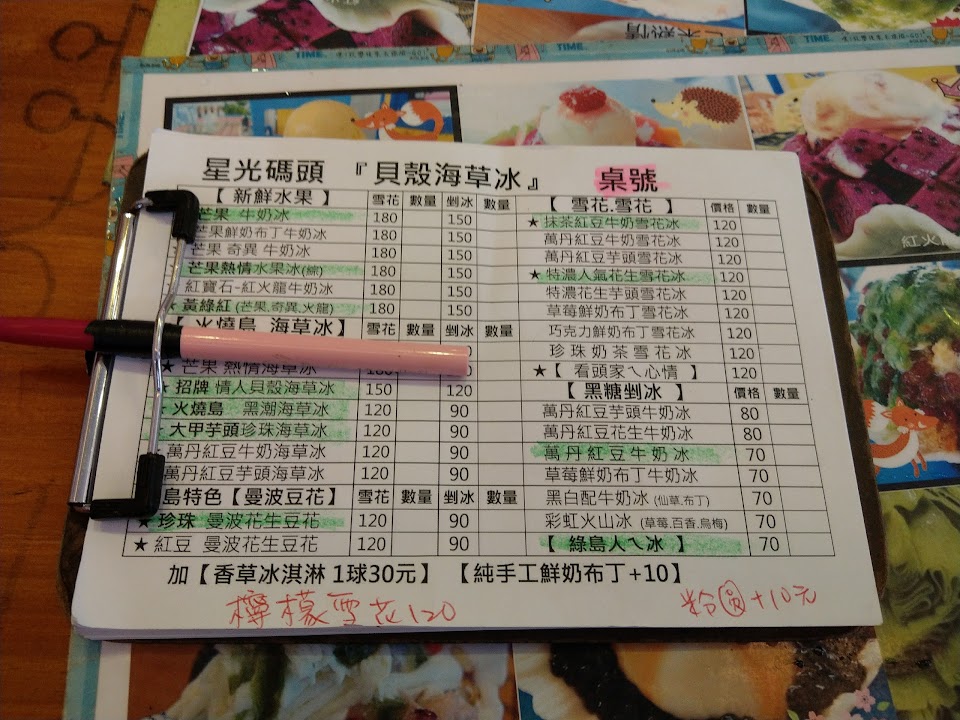 TIME.
TIME.
星光碼頭 『貝殼海草冰』 桌號
【 新鮮水果 】 雪花 數量 剉冰 數量
芒果 牛奶冰 180 150
芒果鮮奶布丁牛奶冰 180 150
芒果 奇異 牛奶冰 180 150
芒果熱情水果冰(綜) 180 150
紅寶石-紅火龍牛奶冰 180 150
★ 黃綠紅 (芒果.奇異.火龍) 180 150
火燒島 海草冰】 雪花 數量 剉冰 數量
★ 芒果 熱情海草冰
★ 招牌 情人貝殼海草冰 150 120
★ 火燒島 黑潮海草冰 120 90
★ 大甲芋頭珍珠海草冰 120 90
萬丹紅豆牛奶海草冰 120 90
萬丹紅豆芋頭海草冰 120 90
島特色【曼波豆花】 雪花 數量 剉冰 數量
★ 珍珠 曼波花生豆花 120 90
★ 紅豆 曼波花生豆花 120 90
【 雪花.雪花 】 價格 數量
★ 抹茶紅豆牛奶雪花冰 120
萬丹紅豆牛奶雪花冰 120
萬丹紅豆芋頭雪花冰 120
★ 特濃人氣花生雪花冰 120
特濃花生芋頭雪花冰 120
草莓鮮奶布丁雪花冰 120
巧克力鮮奶布丁雪花冰 120
珍珠奶茶雪花冰 120
★【 看頭家ㄟ心情 】 120
【 黑糖剉冰 】 價格 數量
萬丹紅豆芋頭牛奶冰 80
萬丹紅豆花生牛奶冰 80
萬丹紅豆牛奶冰 70
草莓鮮奶布丁牛奶冰 70
黑白配牛奶冰 (仙草.布丁) 70
彩虹火山冰 (草莓.百香.烏梅) 70
【 綠島人ㄟ冰 】 70
加【香草冰淇淋 1球30元】 【純手工鮮奶布丁+10】
檸檬雪花120
粉圓+10元